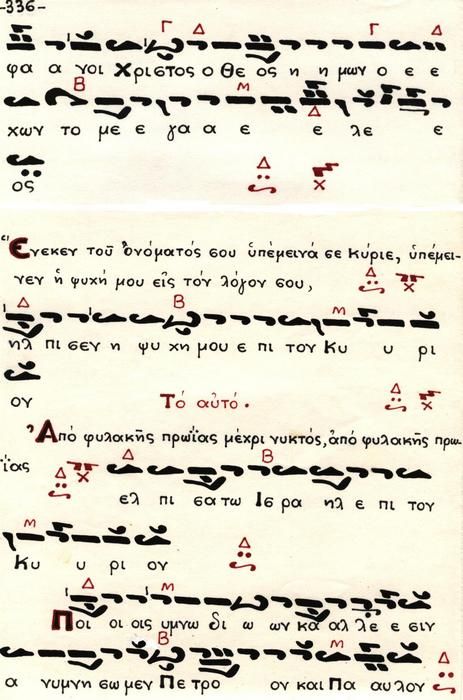 -336-
φα α γοι Χριστος ο Θε ος η η μων ο ε ε
χων το με ε γα α ε ε λε ε
ος
Ἕνεκεν τοῦ ὀνόματός σου ὑπέμεινά σε Κύριε, ὑπέμει-
νεν ἡ ψυχή μου εἰς τόν λόγον σου,
ηλ πι σεν η ψυ χη μου ε πι τον Κυ υ ρι
ον
Τό αὐτό.
Ἀπό φυλακῆς πρωΐας μέχρι νυκτός, ἀπό φυλακῆς πρω-
ΐας
ελ πι σα τω Ισ ρα ηλ ε πι τον
Κυ υ ρι ον
Ποι οι οις υμνω δι ω ων κα αλ λε ε σιν
α νυμνη σω μεν Πε τρο ον και Πα αυλον